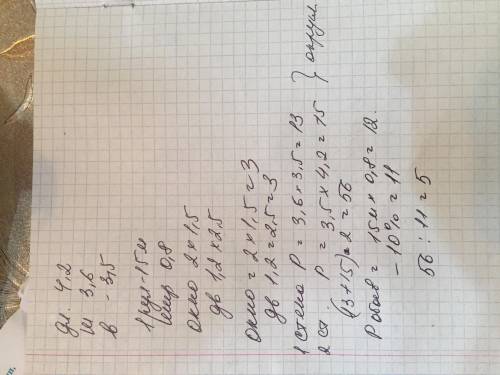 дл. 4,2
ш 3,6
в - 3,5
1 рул - 15 м
шир 0,8
окно 2 × 1,5
дв 1,2 × 2,5
окно = 2 × 1,5 = 3
дв 1,2 = 2,5 = 3
1 стена P = 3,6 × 3,5 = 13
2 ст P = 3,5 × 4,2 = 15 } округл.
(13 + 15) × 2 = 56
P обоев = 15 м × 0,8 = 12.
- 10% = 11
56 : 11 = 5